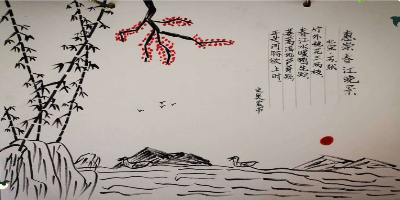 惠崇春江晚景
北宋·苏轼
竹外桃花三两枝
春江水暖鸭先知
蒌蒿满地芦芽短
正是河豚欲上时